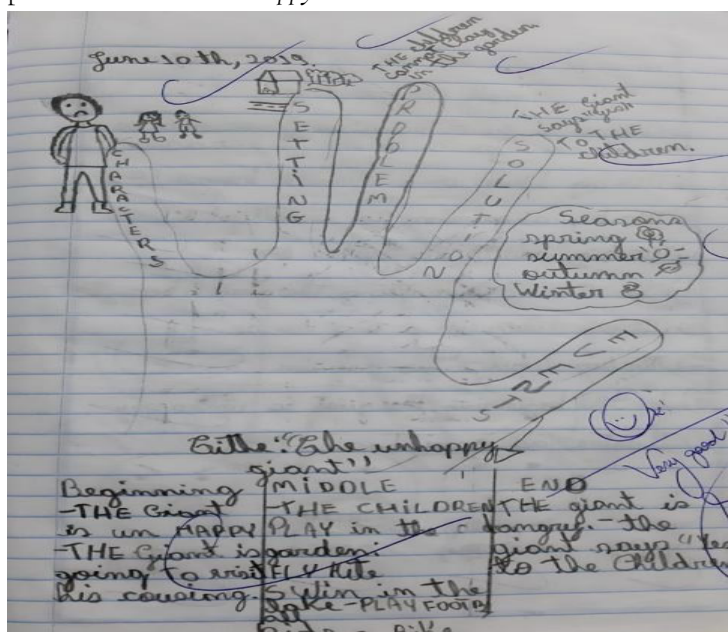 June 10th, 2019.
CHARACTERS
SETTING
THE children
cannot play
in the garden.
PROBLEM
THE Giant
says yes
TO THE
children.
SOLUTION
Seasons
spring
summer
autumn
Winter
EVENTS
Tithe: "The unhappy
giant"
Very good
Beginning
-THE Giant
is un HAPPY
-THE Gyant is
going to visit
his cousing.
MIDDLE
-THE CHILDREN
PLAY in the
garden:
FLY Kite
Swin in the
lake-PLAY FOOTB
all
END
THE giant is
angry.-the
giant says "Yes
to the Children